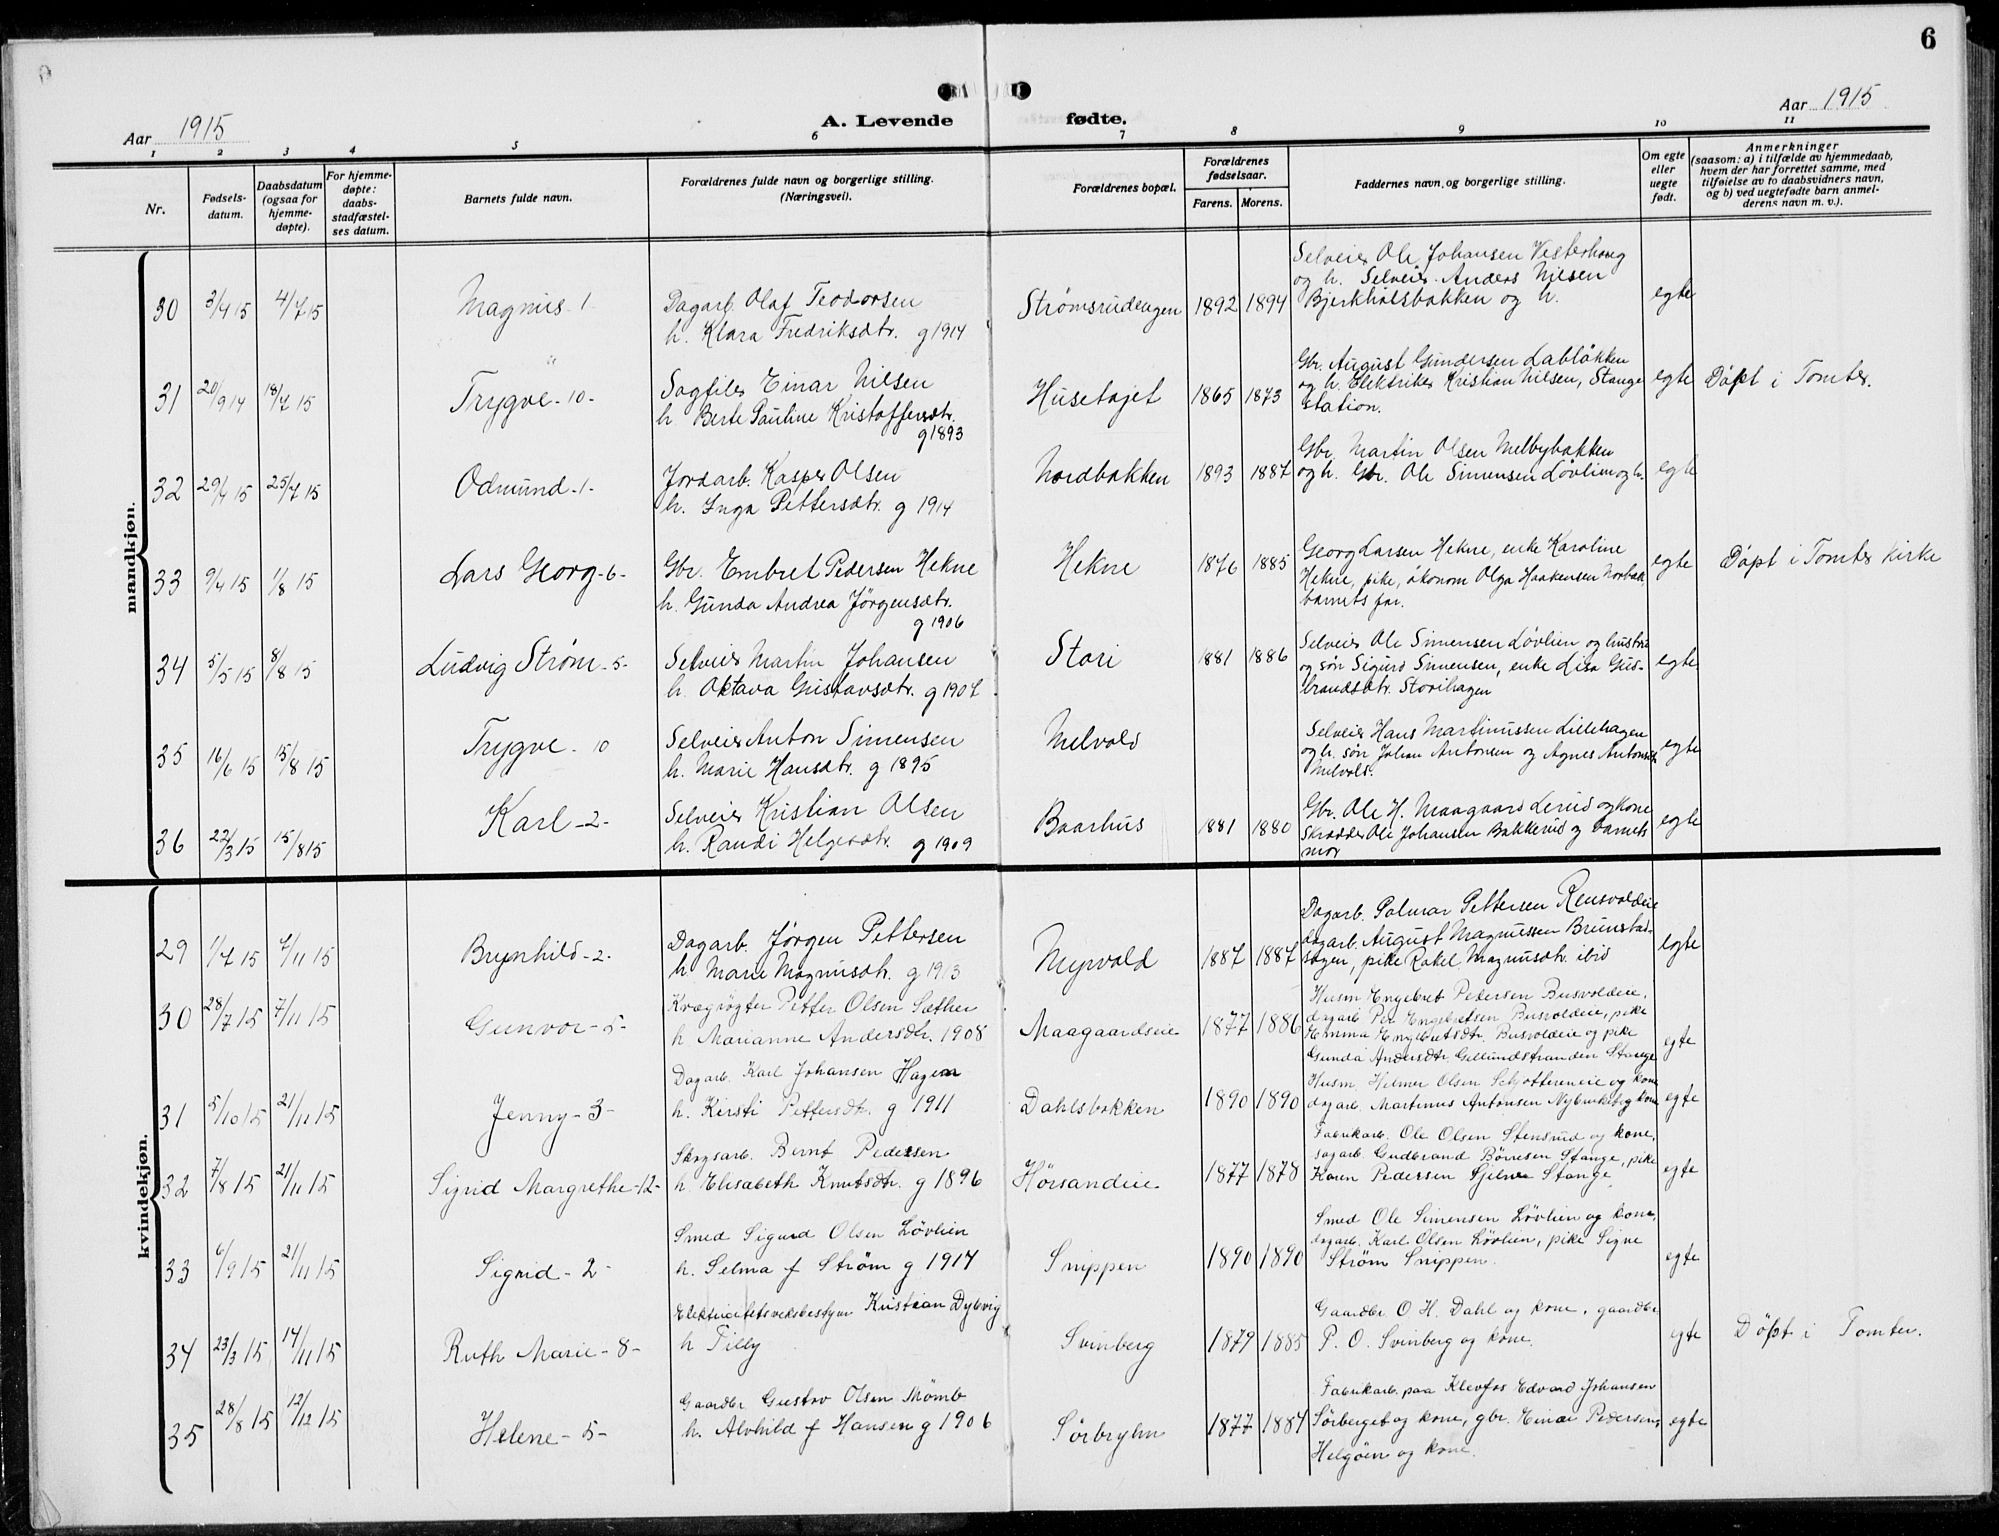 6
Aar 1915
A. Levende fødte.
Aar 1915
1 2 3 4 5 6 7 8 9 10 11
Nr.
Fødsels-
datum.
Daabsdatum
(ogsaa for
hjemme-
døpte).
For hjemme-
døpte:
daabs-
stadfæstel-
ses datum.
Barnets fulde navn.
Forældrenes fulde navn og borgerlige stilling.
(Næringsvei).
Forældrenes bopæl.
Forældrenes
fødselsaar.
Farens. Morens.
Faddernes navn og borgerlige stilling.
Om egte
eller
uegte
født.
Anmerkninger
(saasom: a) i tilfælde av hjemmedaab,
hvem der har forrettet samme, med
tilføielse av to daabsvidners navn,
og b) ved uegtefødte barn anmel-
derens navn m. v.).
mandkjøn.
30 3/4 15 4/7 15 Magnus -1-
Dagarb. Olaf Teodorsen
h. Klara Fredriksdtr. g 1914
Strømsrudengen 1892 1894
Selveier Ole Johansen Vesterhaug
og h. Selveier Anders Nilsen
Bjerkholsbakken og h.
egte
31 20/9 14 18/7 15 Trygve -10-
Sagfiler Einar Nilsen
h Berte Pauline Kristoffersdtr.
g 1893
Husetajet 1865 1873
Gbr. August Gundersen Labløkken
og h. Elektriker Kristian Nilsen, Stange
station.
egte Døpt i Tomter.
32 29/4 15 25/7 15 Odmund -1-
Jordarb. Kasper Olsen
h. Inga Pettersdtr. g 1914
Nordbakken 1893 1887
Gbr. Martin Olsen Melbybakken
og h. Gbr. Ole Simensen Løvlien og h.
egte
33 9/4 15 1/8 15 Lars Georg -6-
Gbr. Embret Pedersen Hekne
h. Gunda Andrea Jørgensdtr.
g 1906
Hekne 1876 1885
Georg Larsen Hekne, enke Karoline
Hekne, pike, økonom Olga Haakensen
barnets far.
egte Døpt i Tomter kirke
34 5/5 15 8/8 15 Ludvig Strøm -5-
Selveier Martin Johansen
h. Oktava Gustavsdtr. g 1907
Stori 1881 1886
Selveier Ole Simensen Løvlien og hustru
og søn Sigurd Simensen, enke Lisa Gud-
brandsdtr. Storihagen
egte
35 16/6 15 15/8 15 Trygve - 10
Selveier Anton Simensen
h. Marie Hansdtr. g 1895
Melvold
Selveier Hans Martinussen Lillehagen
og h. søn Johan Antonsen og Agnes Antonsdtr
Melvold.
egte
36 22/3 15 15/8 15 Karl -2-
Selveier Kristian Olsen
h. Randi Helgesdtr. g 1909
Baarhus 1881 1880
Gbr. Ole H. Maagaard Lerud og kone
skrædder Ole Johansen Bakkerud og barnets
mor
egte
kvindekjøn.
29 1/7 15 7/11 15 Brynhild -2-
Dagarb. Jørgen Pettersen
h. Marie Magnusdtr. g 1913
Myrvold 1887 1887
Dagarb. Palmar Pettersen Rensvoldeie
dagarb. August Magnussen Brunstad-
sagen, pike Rakel Magnusdtr. ibid
egte
30 28/7 15 7/11 15 Gunvor -5-
Kvægrøgter Petter Olsen Sæther
h Marianne Andersdtr. 1908
Maagaardseie 1877 1886
Husm Engebret Pedersen Busvoldeie,
dagarb. Per Engebretsen Busvoldeie, pike
Emma Engebretsdtr. Busvoldeie og pike
Gunda Andersdtr. Gillundstranden Stange
egte
31 5/10 15 21/11 15 Jenny -3-
Dagarb. Karl Johansen Hagen
h. Kirsti Pettersdtr. g 1911
Dahlsbakken 1890 1890
Husm. Helmer Olsen Schjøttereneie og kone
dagarb. Martinus Antonsen Nybrukeb og kone
egte
32 7/8 15 21/11 15 Sigrid Margrethe -12-
Skogsarb. Bernt Pedersen
h. Elisabeth Knutsdtr. g 1896
Hørsandeie 1877 1878
Fabrikarb. Ole Olsen Stensrud og kone,
sagarb. Gudbrand Børresen Stange, pike
Karen Pedersen Stange
egte
33 6/9 15 21/11 15 Sigrid -2-
Smed Sigurd Olsen Løvlien
h. Selma f Strøm g 1914
Snippen 1890 1890
Smed Ole Simensen Løvlien og kone,
dagarb. Karl Olsen Løvlien, pike Signe
Strøm Snippen.
egte
34 23/3 15 14/11 15 Ruth Marie -8-
Elektricitetsverksbestyrer Kristian Dybvig
h Tilly
Svinberg 1879 1885
Gaardbr O. H. Dahl og kone, gaardbr
P. O. Svinberg og kone.
egte Døpt i Tomter.
35 28/8 15 12/12 15 Helene -5-
Gaardbr Gustav Olsen Mømb
h. Alvhild f Hansen g 1906
Sørbryhn 1877 1884
Fabrikarb. paa Klevfos Edvard Johansen
Sørberget og kone, gbr. Einar Pedersen
Helgøen og kone.
egte